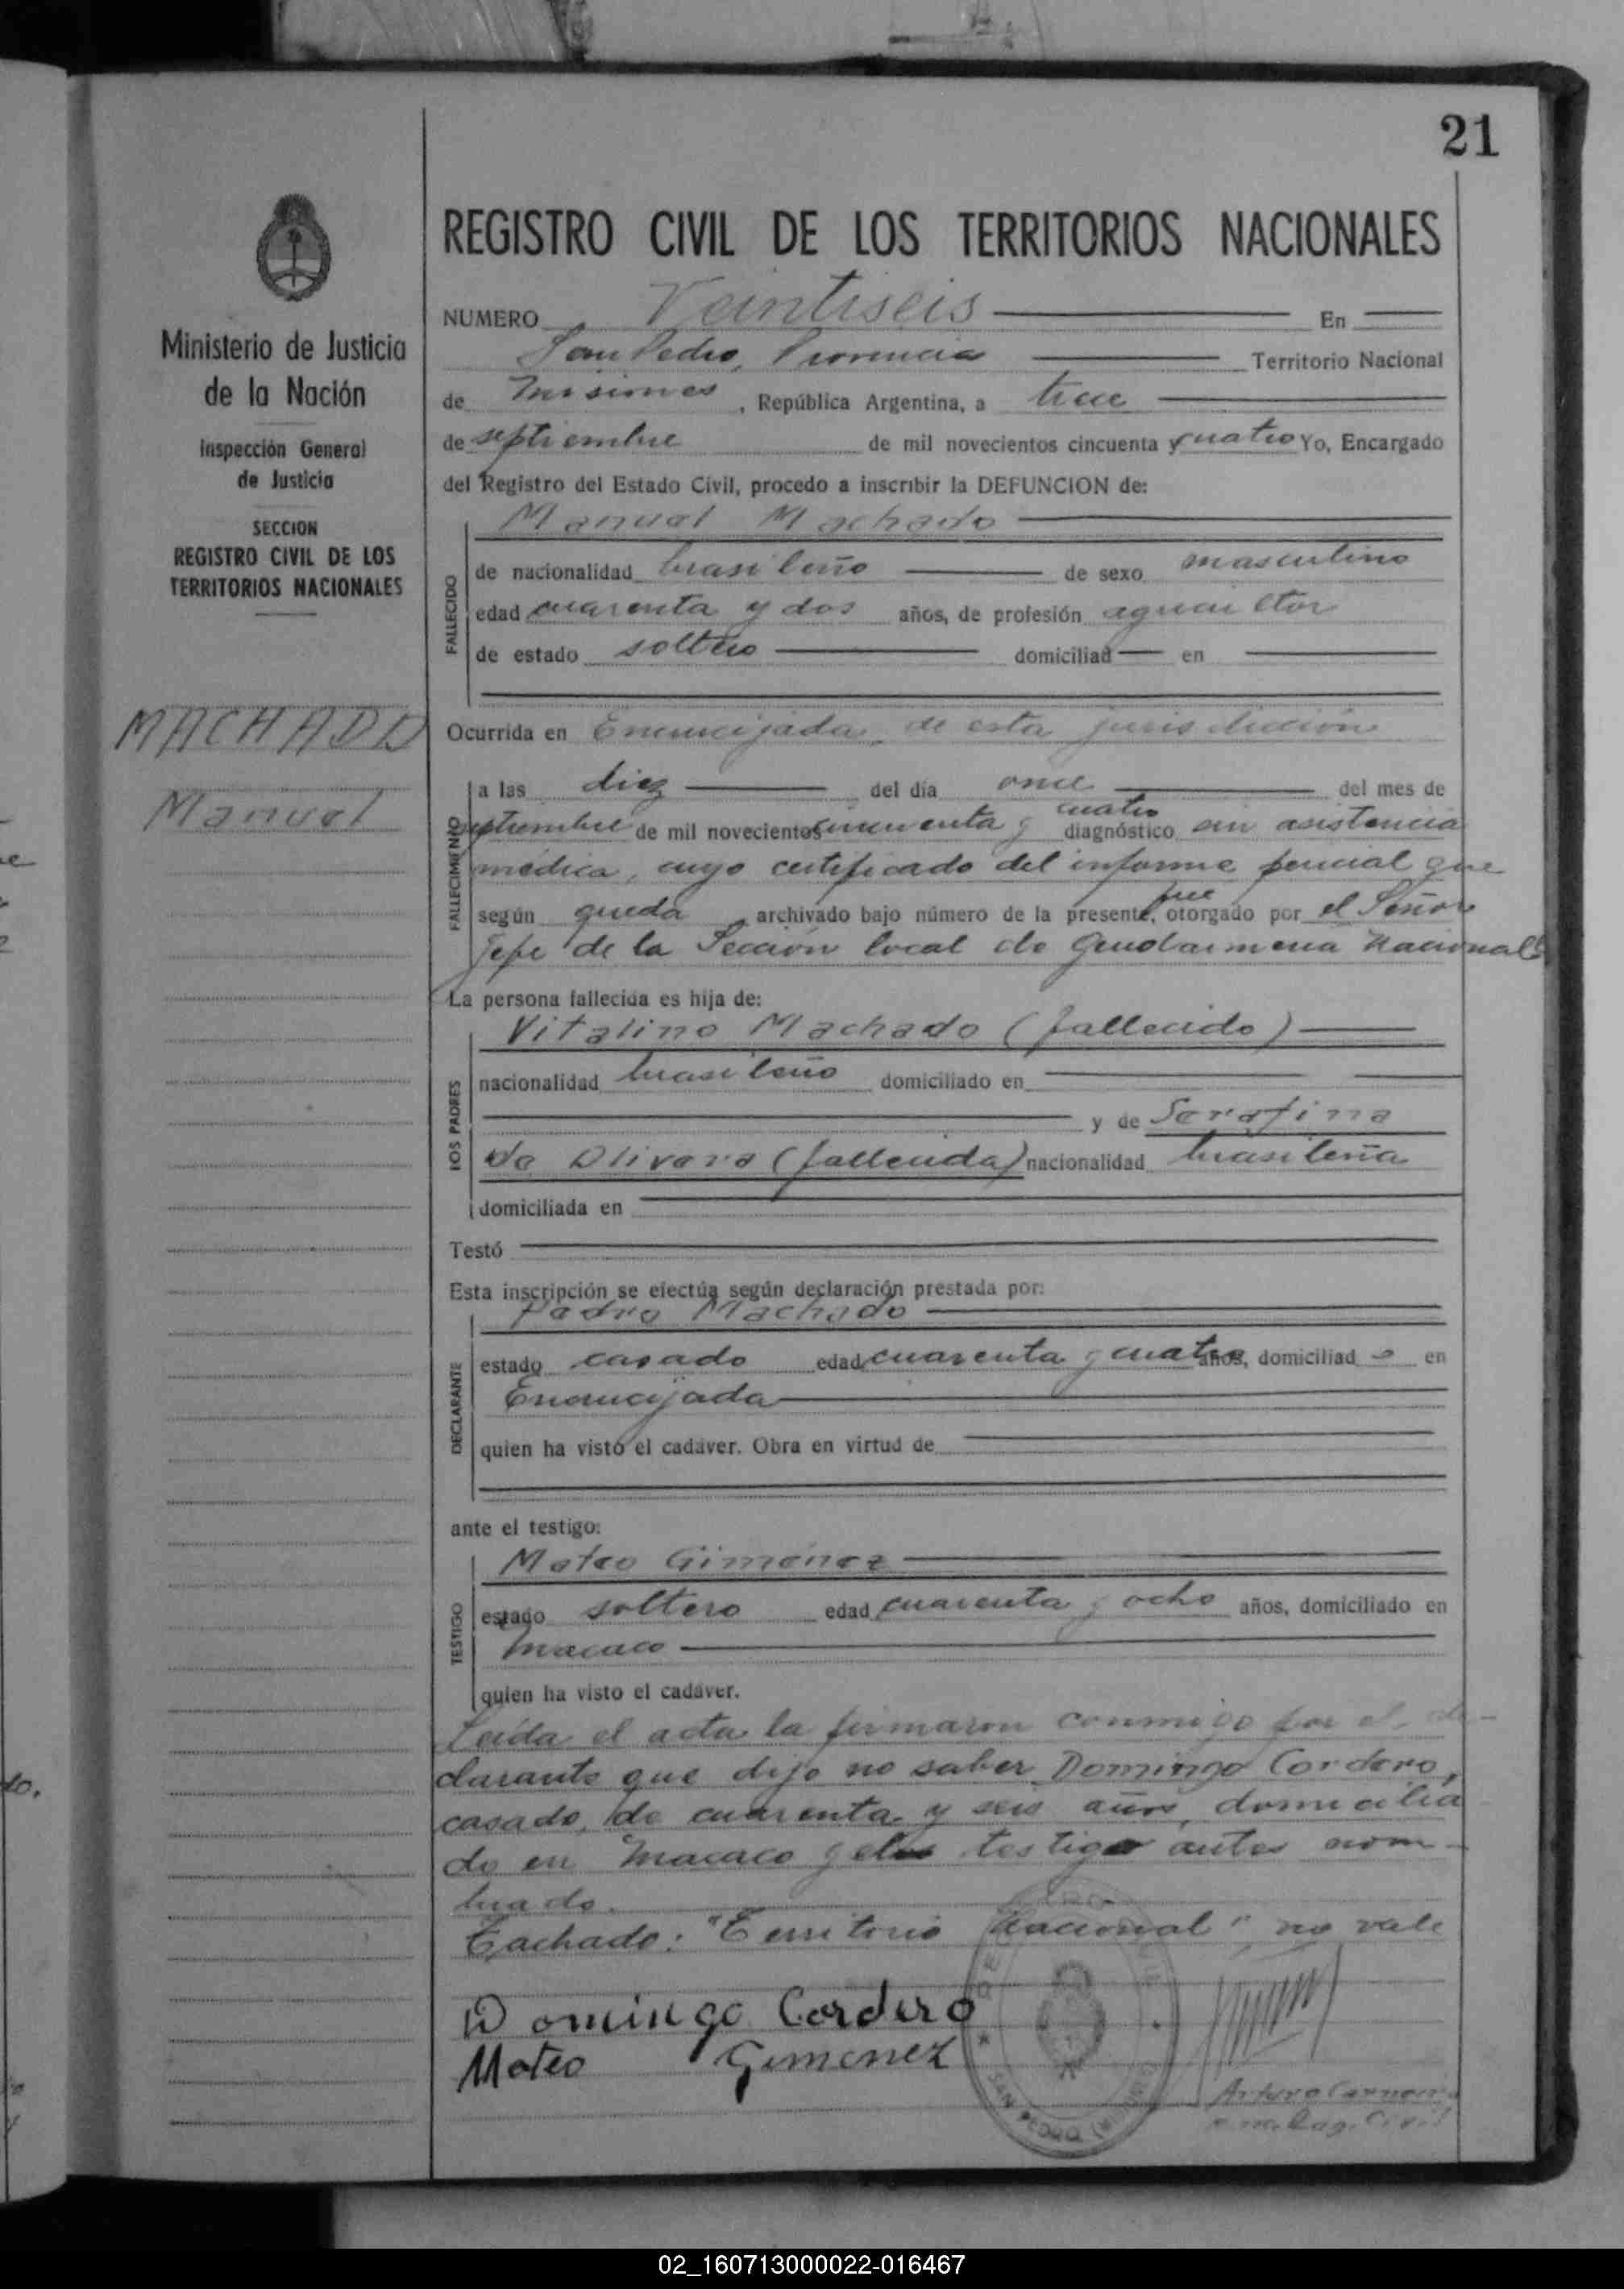 21
REGISTRO CIVIL DE LOS TERRITORIOS NACIONALES
Ministerio de Justicia
de la Nación
Inspección General
de Justicia
SECCION
REGISTRO CIVIL DE LOS
TERRITORIOS NACIONALES
MACHADO
Manuel
NUMERO Veintiseis En
San Pedro, Provincia Territorio Nacional
de Misiones, República Argentina, a trece
de septiembre de mil novecientos cincuenta y cuatro Yo, Encargado
del Registro del Estado Civil, procedo a inscribir la DEFUNCION de:
Manuel Machado
FALLECIDO
de nacionalidad brasileño de sexo masculino
edad cuarenta y dos años, de profesión agricultor
de estado soltero domiciliad en
Ocurrida en Encrucijada, de esta jurisdicción
FALLECIMIENTO
a las diez del día once del mes de
septiembre de mil novecientos cincuenta y cuatro diagnóstico sin asistencia
médica, cuyo certificado del informe pericial que
según queda archivado bajo número de la presente, fue otorgado por el Señor
Jefe de la Sección local de Gendarmeria Nacional
La persona fallecida es hija de:
Vitalino Machado (fallecido)
LOS PADRES
nacionalidad brasileño domiciliado en
y de Serafina
de Olivera (fallecida) nacionalidad brasileña
domiciliada en
Testó
Esta inscripción se efectúa según declaración prestada por:
Pedro Machado
DECLARANTE
estado casado edad cuarenta y cuatro años, domiciliad o en
Encrucijada
quien ha visto el cadáver. Obra en virtud de
ante el testigo:
Mateo Gimenez
TESTIGO
estado soltero edad cuarenta y ocho años, domiciliado en
Macaco
quien ha visto el cadáver.
Leída el acta la firmaron conmigo por el de-
clarante que dijo no saber Domingo Cordero,
casado, de cuarenta y seis años, domicilia
do en Macaco y el testigo antes nom-
brado.
Tachado: "Territorio Nacional" no vale
Domingo Cordero
Mateo Gimenez
SAN PEDRO
Arturo
Reg. Civil
02_160713000022-016467